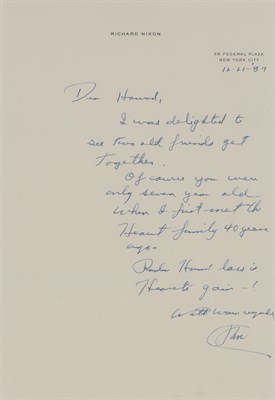 RICHARD NIXON
26 FEDERAL PLAZA
NEW YORK CITY
12-21-'87
Dear Howard,
I was delighted to
see two old friends get
together.
Of course you were
only seven years old
when I first met the
Hearst family 40 years
ago.
Howard loss is
Hearsts gain - !
With warm regards